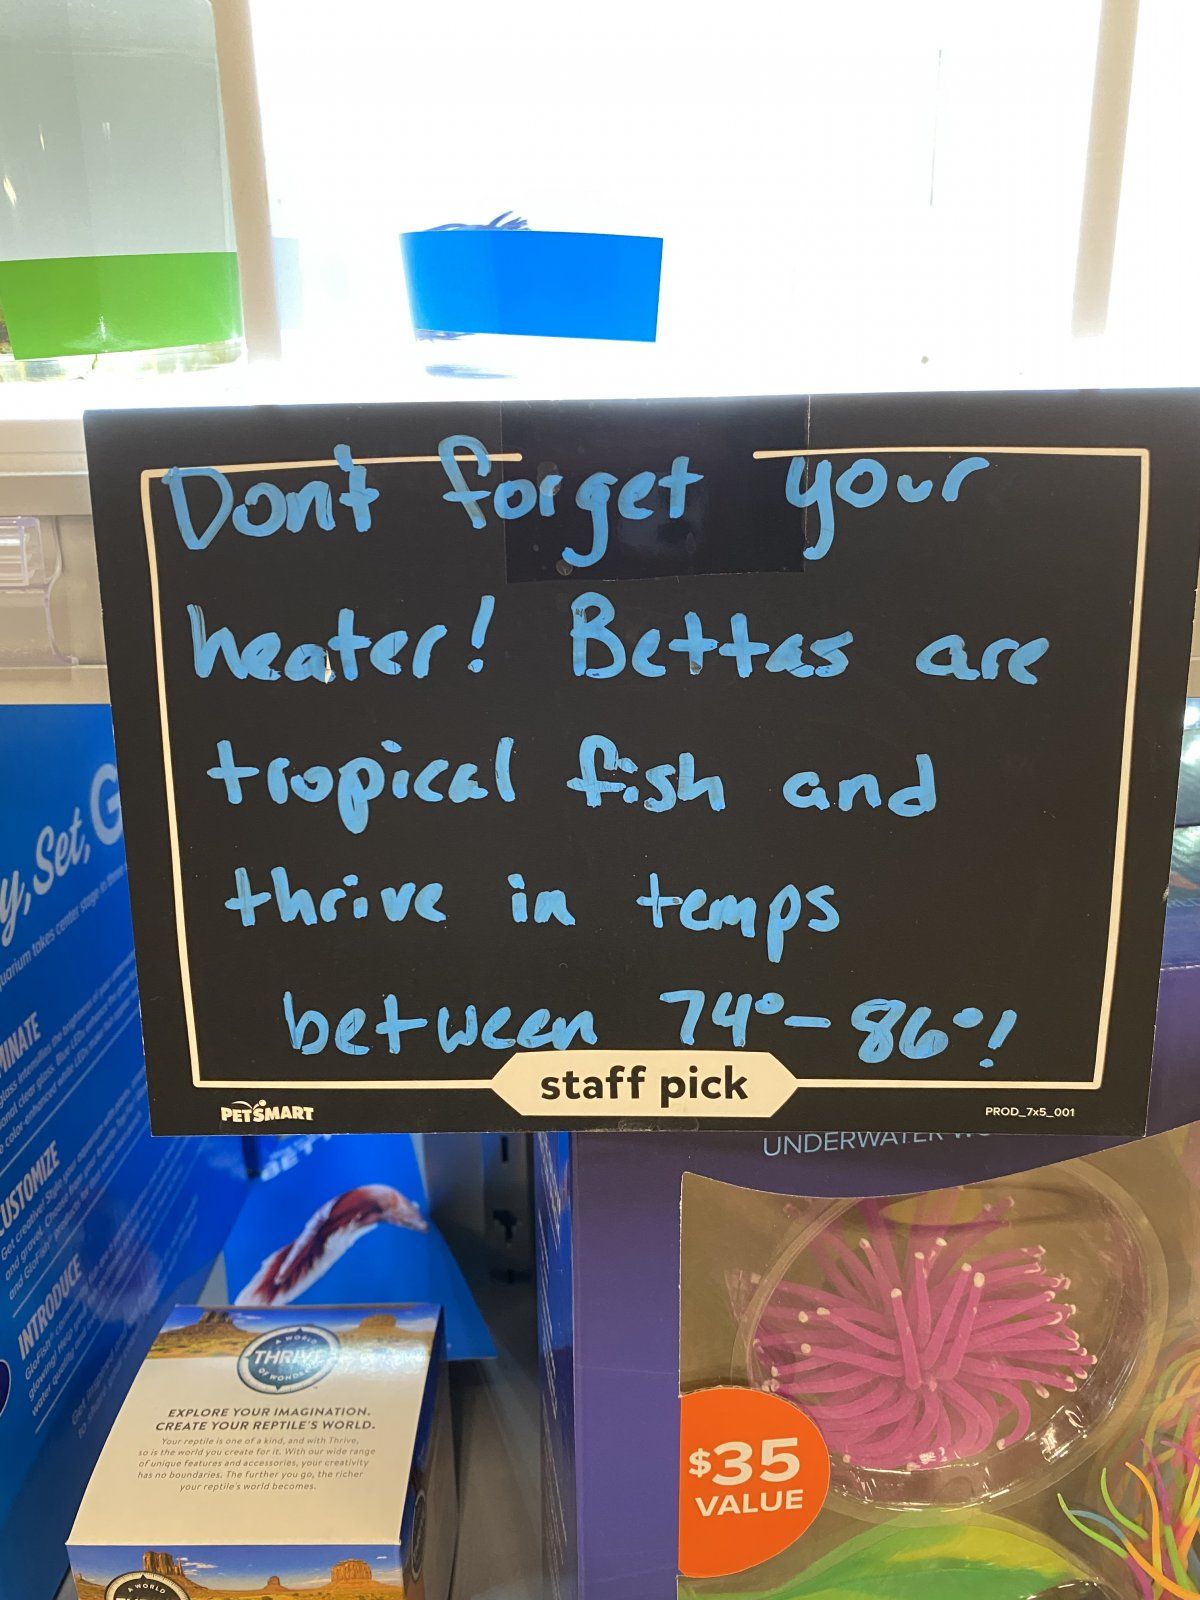 Don't forget your
heater! Bettas are
tropical fish and
thrive in temps
between 74°-86°!
staff pick
PETSMART
PROD_7x5_001
UNDERWATER
Set,
CUSTOMIZE
INTRODUCE
A WORLD
THRIVE
OF WONDER
EXPLORE YOUR IMAGINATION.
CREATE YOUR REPTILE'S WORLD.
Your reptile is one of a kind, and with Thrive,
so is the world you create for it. With our wide range
of unique features and accessories, your creativity
has no boundaries. The further you go, the richer
your reptile's world becomes.
A WORLD
$35
VALUE